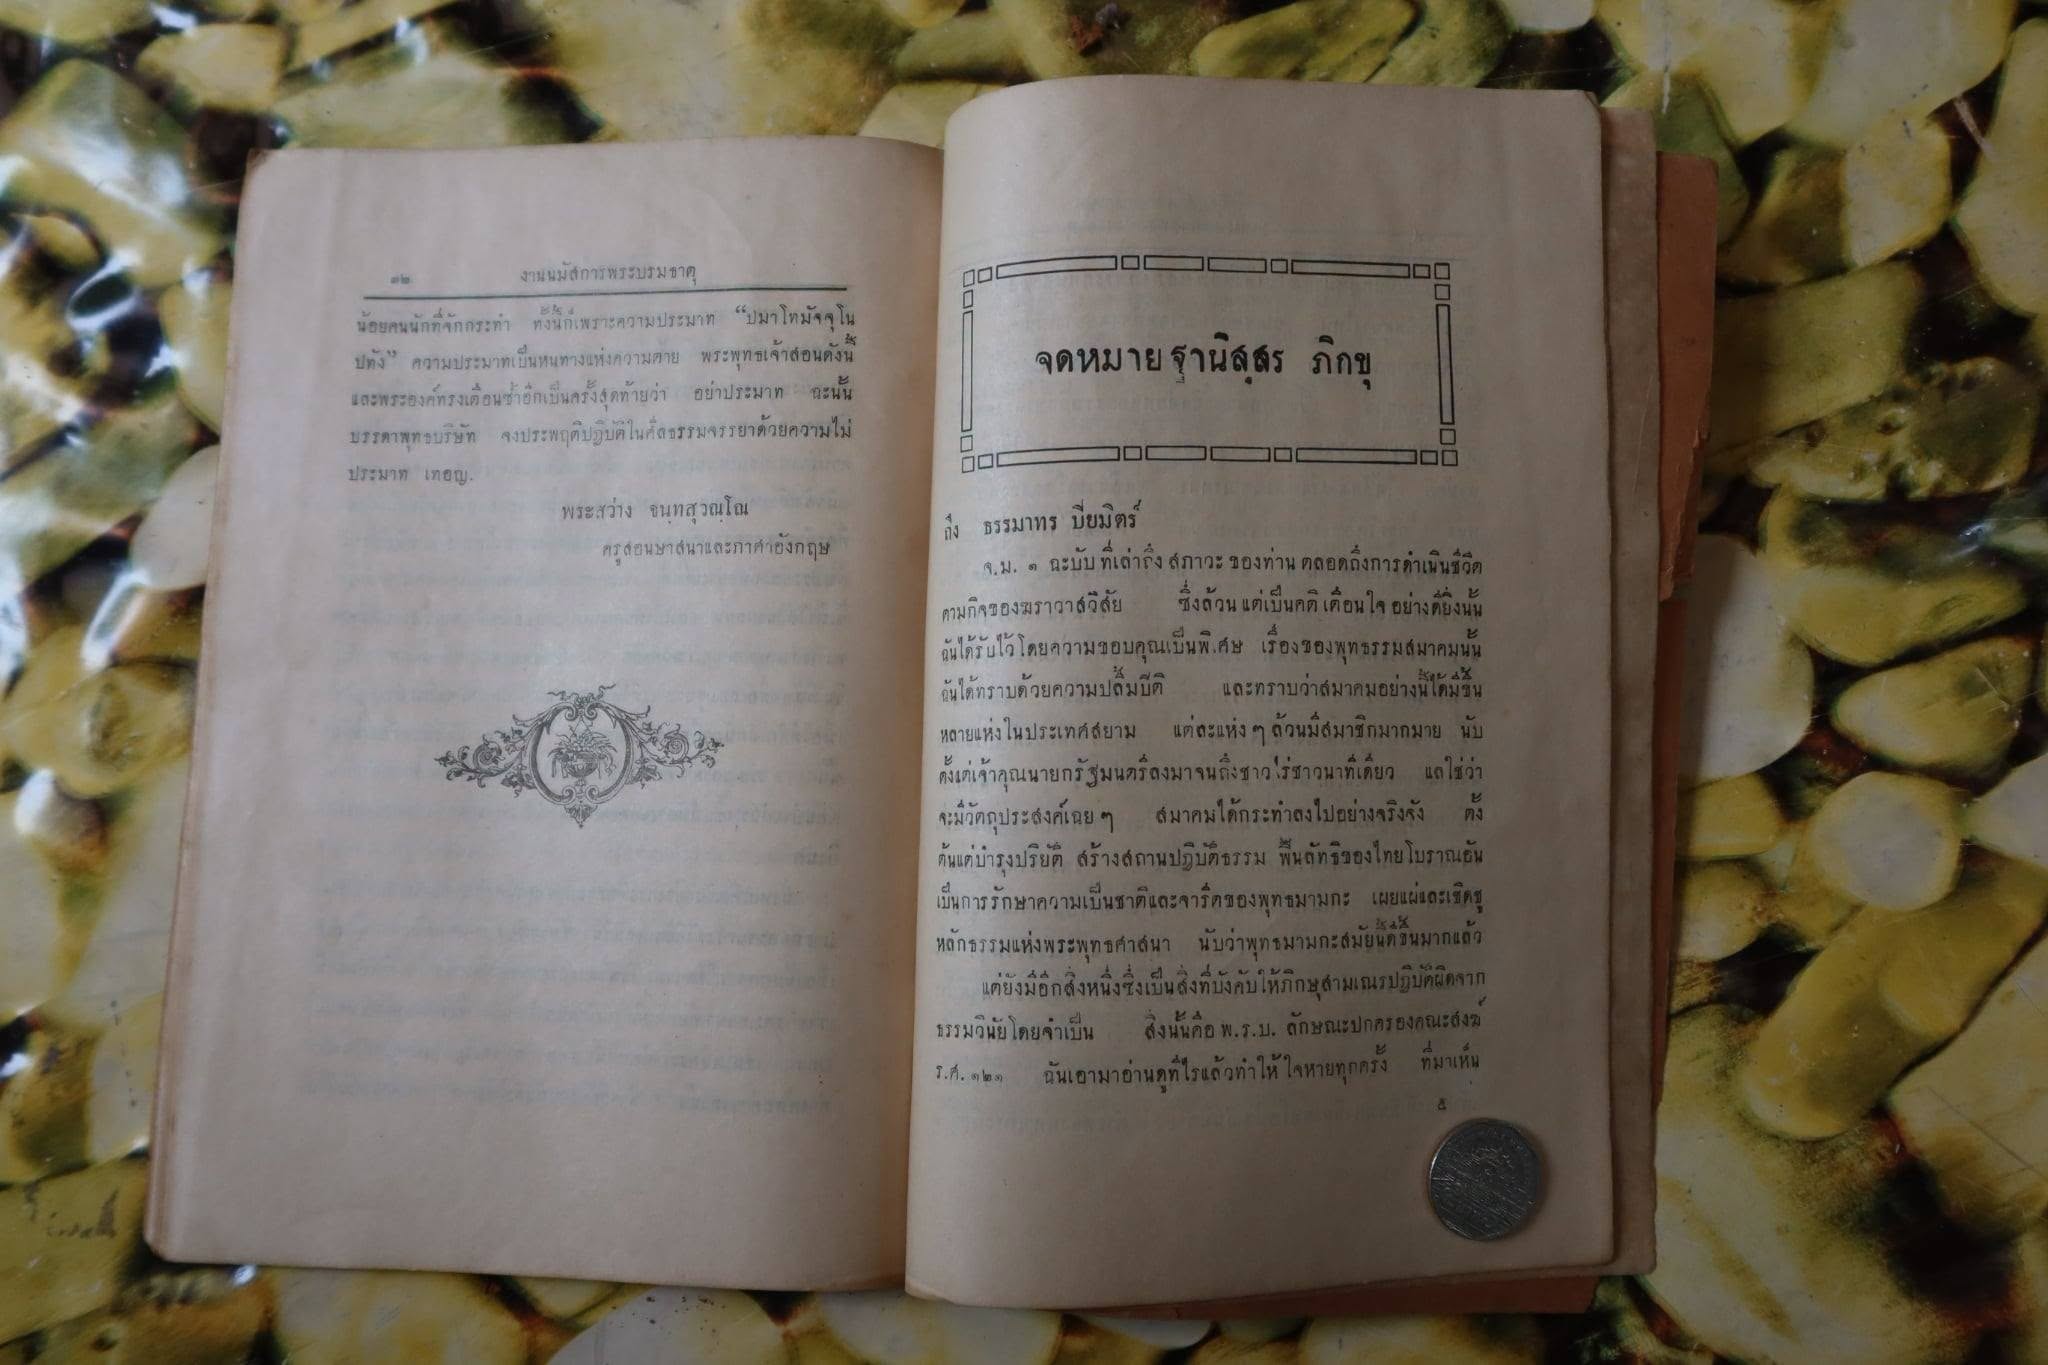 ๑๒ งานนมัสการพระบรมธาตุ
น้อยคนนักที่จักกระทำ ทั้งนี้ก็เพราะความประมาท “ปมาโทมัจจุโน
ปทัง” ความประมาทเป็นหนทางแห่งความตาย พระพุทธเจ้าสอนดังนี้
และพระองค์ทรงเตือนซ้ำอีกเป็นครั้งสุดท้ายว่า อย่าประมาท ฉะนั้น
บรรดาพุทธบริษัท จงประพฤติปฏิบัติในศีลธรรมจรรยาด้วยความไม่
ประมาท เทอญ.
พระสว่าง จนฺทสุวณฺโณ
ครูสอนษาสนาและภาศาอังกฤษ
จดหมาย ฐานิสฺสร ภิกขุ
ถึง ธรรมาทร ปิยมิตร์
จ.ม. ๑ ฉะบับ ที่เล่าถึง สภาวะ ของท่าน ตลอดถึงการดำเนินชีวิต
ตามกิจของฆราวาสวิสัย ซึ่งล้วน แต่เป็นคติ เตือนใจ อย่างดียิ่งนั้น
ฉันได้รับไว้โดยความขอบคุณเป็นพิเศษ เรื่องของพุทธธรรมสมาคมนั้น
ฉันได้ทราบด้วยความปลื้มปีติ และทราบว่าสมาคมอย่างนี้ได้มีขึ้น
หลายแห่งในประเทศสยาม แต่ละแห่ง ๆ ล้วนมีสมาชิกมากมาย นับ
ตั้งแต่เจ้าคุณนายกรัฐมนตรีลงมาจนถึงชาวไร่ชาวนาทีเดียว แลใช่ว่า
จะมีวัตถุประสงค์เฉย ๆ สมาคมได้กระทำลงไปอย่างจริงจัง ตั้ง
ต้นแต่บำรุงปริยัติ สร้างสถานปฏิบัติธรรม ฟื้นลัทธิของไทยโบราณอัน
เป็นการรักษาความเป็นชาติและจารีตของพุทธมามกะ เผยแผ่และเชิดชู
หลักธรรมแห่งพระพุทธศาสนา นับว่าพุทธมามกะสมัยนี้ดีขึ้นมากแล้ว
แต่ยังมีอีกสิ่งหนึ่งซึ่งเป็นสิ่งที่บังคับให้ภิกษุสามเณรปฏิบัติผิดจาก
ธรรมวินัยโดยจำเป็น สิ่งนั้นคือ พ.ร.บ. ลักษณะปกครองคณะสงฆ์
ร.ศ. ๑๒๑ ฉันเอามาอ่านดูทีไรแล้วทำให้ ใจหายทุกครั้ง ที่มาเห็น
๕